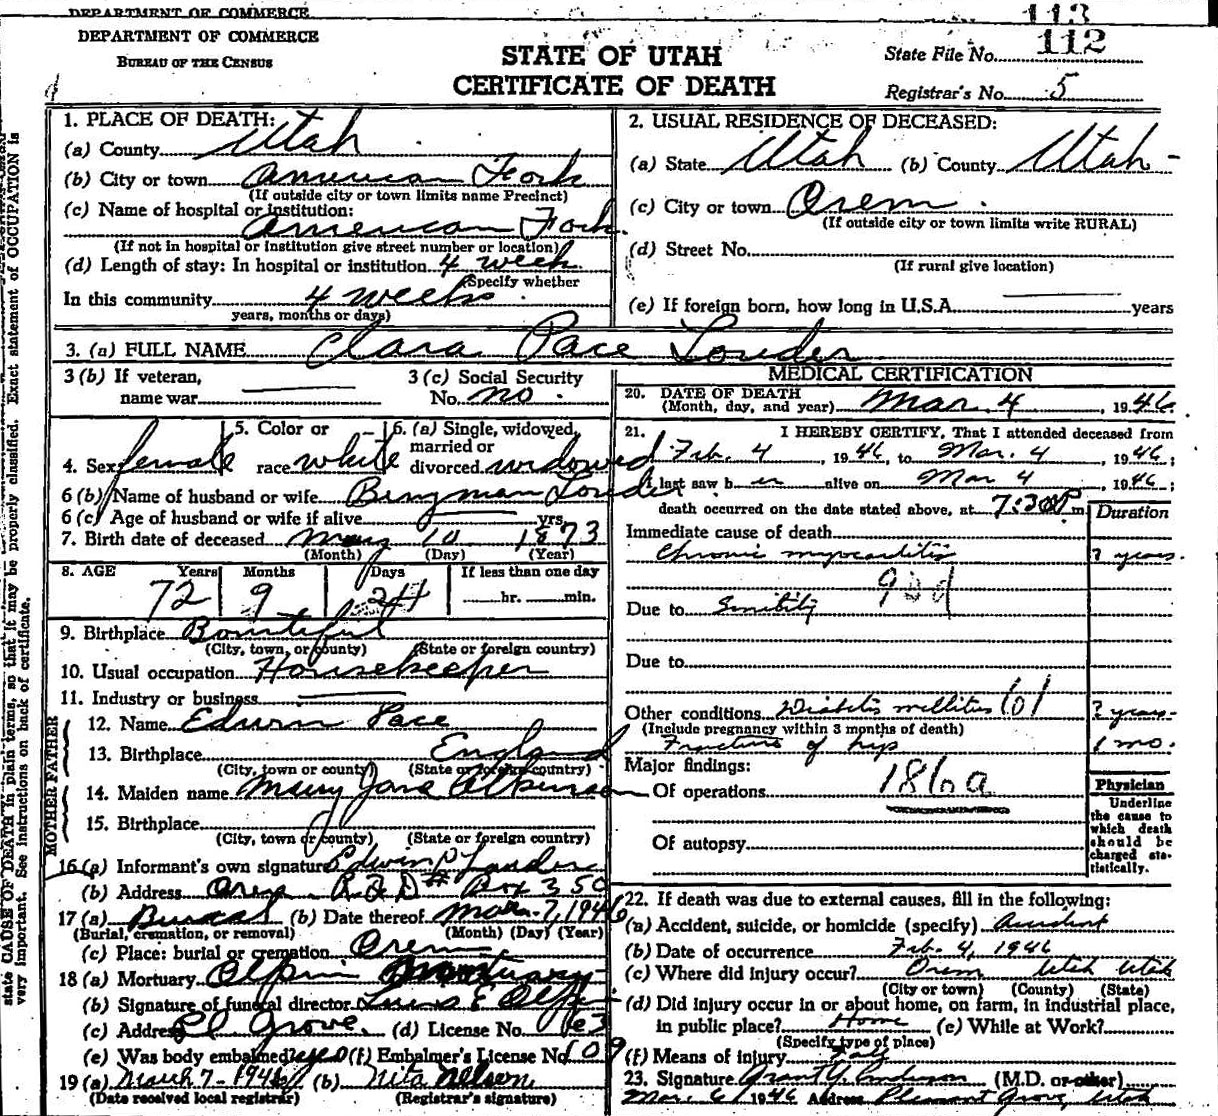 DEPARTMENT OF COMMERCE
113
DEPARTMENT OF COMMERCE
BUREAU OF THE CENSUS
STATE OF UTAH
CERTIFICATE OF DEATH
State File No. 112
Registrar's No. 5
state CAUSE OF DEATH in plain terms, so that it may be properly classified. Exact statement of OCCUPATION is
very important. See instructions on back of certificate.
1. PLACE OF DEATH:
(a) County Utah
(b) City or town American Fork
(If outside city or town limits name Precinct)
(c) Name of hospital or institution:
American Fork
(If not in hospital or institution give street number or location)
(d) Length of stay: In hospital or institution 4 week
(Specify whether
In this community 4 weeks
years, months or days)
2. USUAL RESIDENCE OF DECEASED:
(a) State Utah (b) County Utah
(c) City or town Orem
(If outside city or town limits write RURAL)
(d) Street No.
(If rural give location)
(e) If foreign born, how long in U.S.A. years
3. (a) FULL NAME Clara Pace Louder
3 (b) If veteran,
name war
3 (c) Social Security
No. no
4. Sex female
5. Color or
race white
6. (a) Single, widowed,
married or
divorced widowed
6 (b) Name of husband or wife Bingman Louder
6 (c) Age of husband or wife if alive yrs.
7. Birth date of deceased May 10 1873
(Month) (Day) (Year)
8. AGE Years Months Days If less than one day
72 9 24 hr. min.
9. Birthplace Bountiful
(City, town, or county) (State or foreign country)
10. Usual occupation Housekeeper
11. Industry or business
FATHER
12. Name Edwin Pace
13. Birthplace England
(City, town or county) (State or foreign country)
MOTHER
14. Maiden name Mary Jane Atkinson
15. Birthplace
(City, town or county) (State or foreign country)
16 (a) Informant's own signature Edwin P Louder
(b) Address Orem R F D # Box 350
17 (a) Burial (b) Date thereof Mar. 7, 1946
(Burial, cremation, or removal) (Month) (Day) (Year)
(c) Place: burial or cremation Orem
18 (a) Mortuary Olpin Mortuary
(b) Signature of funeral director E Olpin
(c) Address Pl Grove. (d) License No. 63
(e) Was body embalmed? yes (f) Embalmer's License No. 109
19 (a) March 7-1946 (b) Nita Nelson
(Date received local registrar) (Registrar's signature)
MEDICAL CERTIFICATION
20. DATE OF DEATH
(Month, day, and year) Mar. 4, 1946
21. I HEREBY CERTIFY, That I attended deceased from
Feb. 4, 1946, to Mar. 4, 1946;
I last saw her alive on Mar 4, 1946;
death occurred on the date stated above, at 7:30 P m.
Duration
Immediate cause of death
Chronic myocarditis ? years.
93d
Due to Senility
Due to
Other conditions Diabetis mellitus 61 ? years
(Include pregnancy within 3 months of death)
Fracture of hip 1 mo.
Major findings:
Of operations 186a
Of autopsy
Physician
Underline
the cause to
which death
should be
charged sta-
tistically.
22. If death was due to external causes, fill in the following:
(a) Accident, suicide, or homicide (specify) Accident
(b) Date of occurrence Feb. 4, 1946
(c) Where did injury occur? Orem Utah Utah
(City or town) (County) (State)
(d) Did injury occur in or about home, on farm, in industrial place,
in public place? Home (e) While at Work?
(Specify type of place)
(f) Means of injury Fall
23. Signature Grant Y. Anderson (M.D. or other)
Mar. 6, 1946 Address Pleasant Grove, Utah